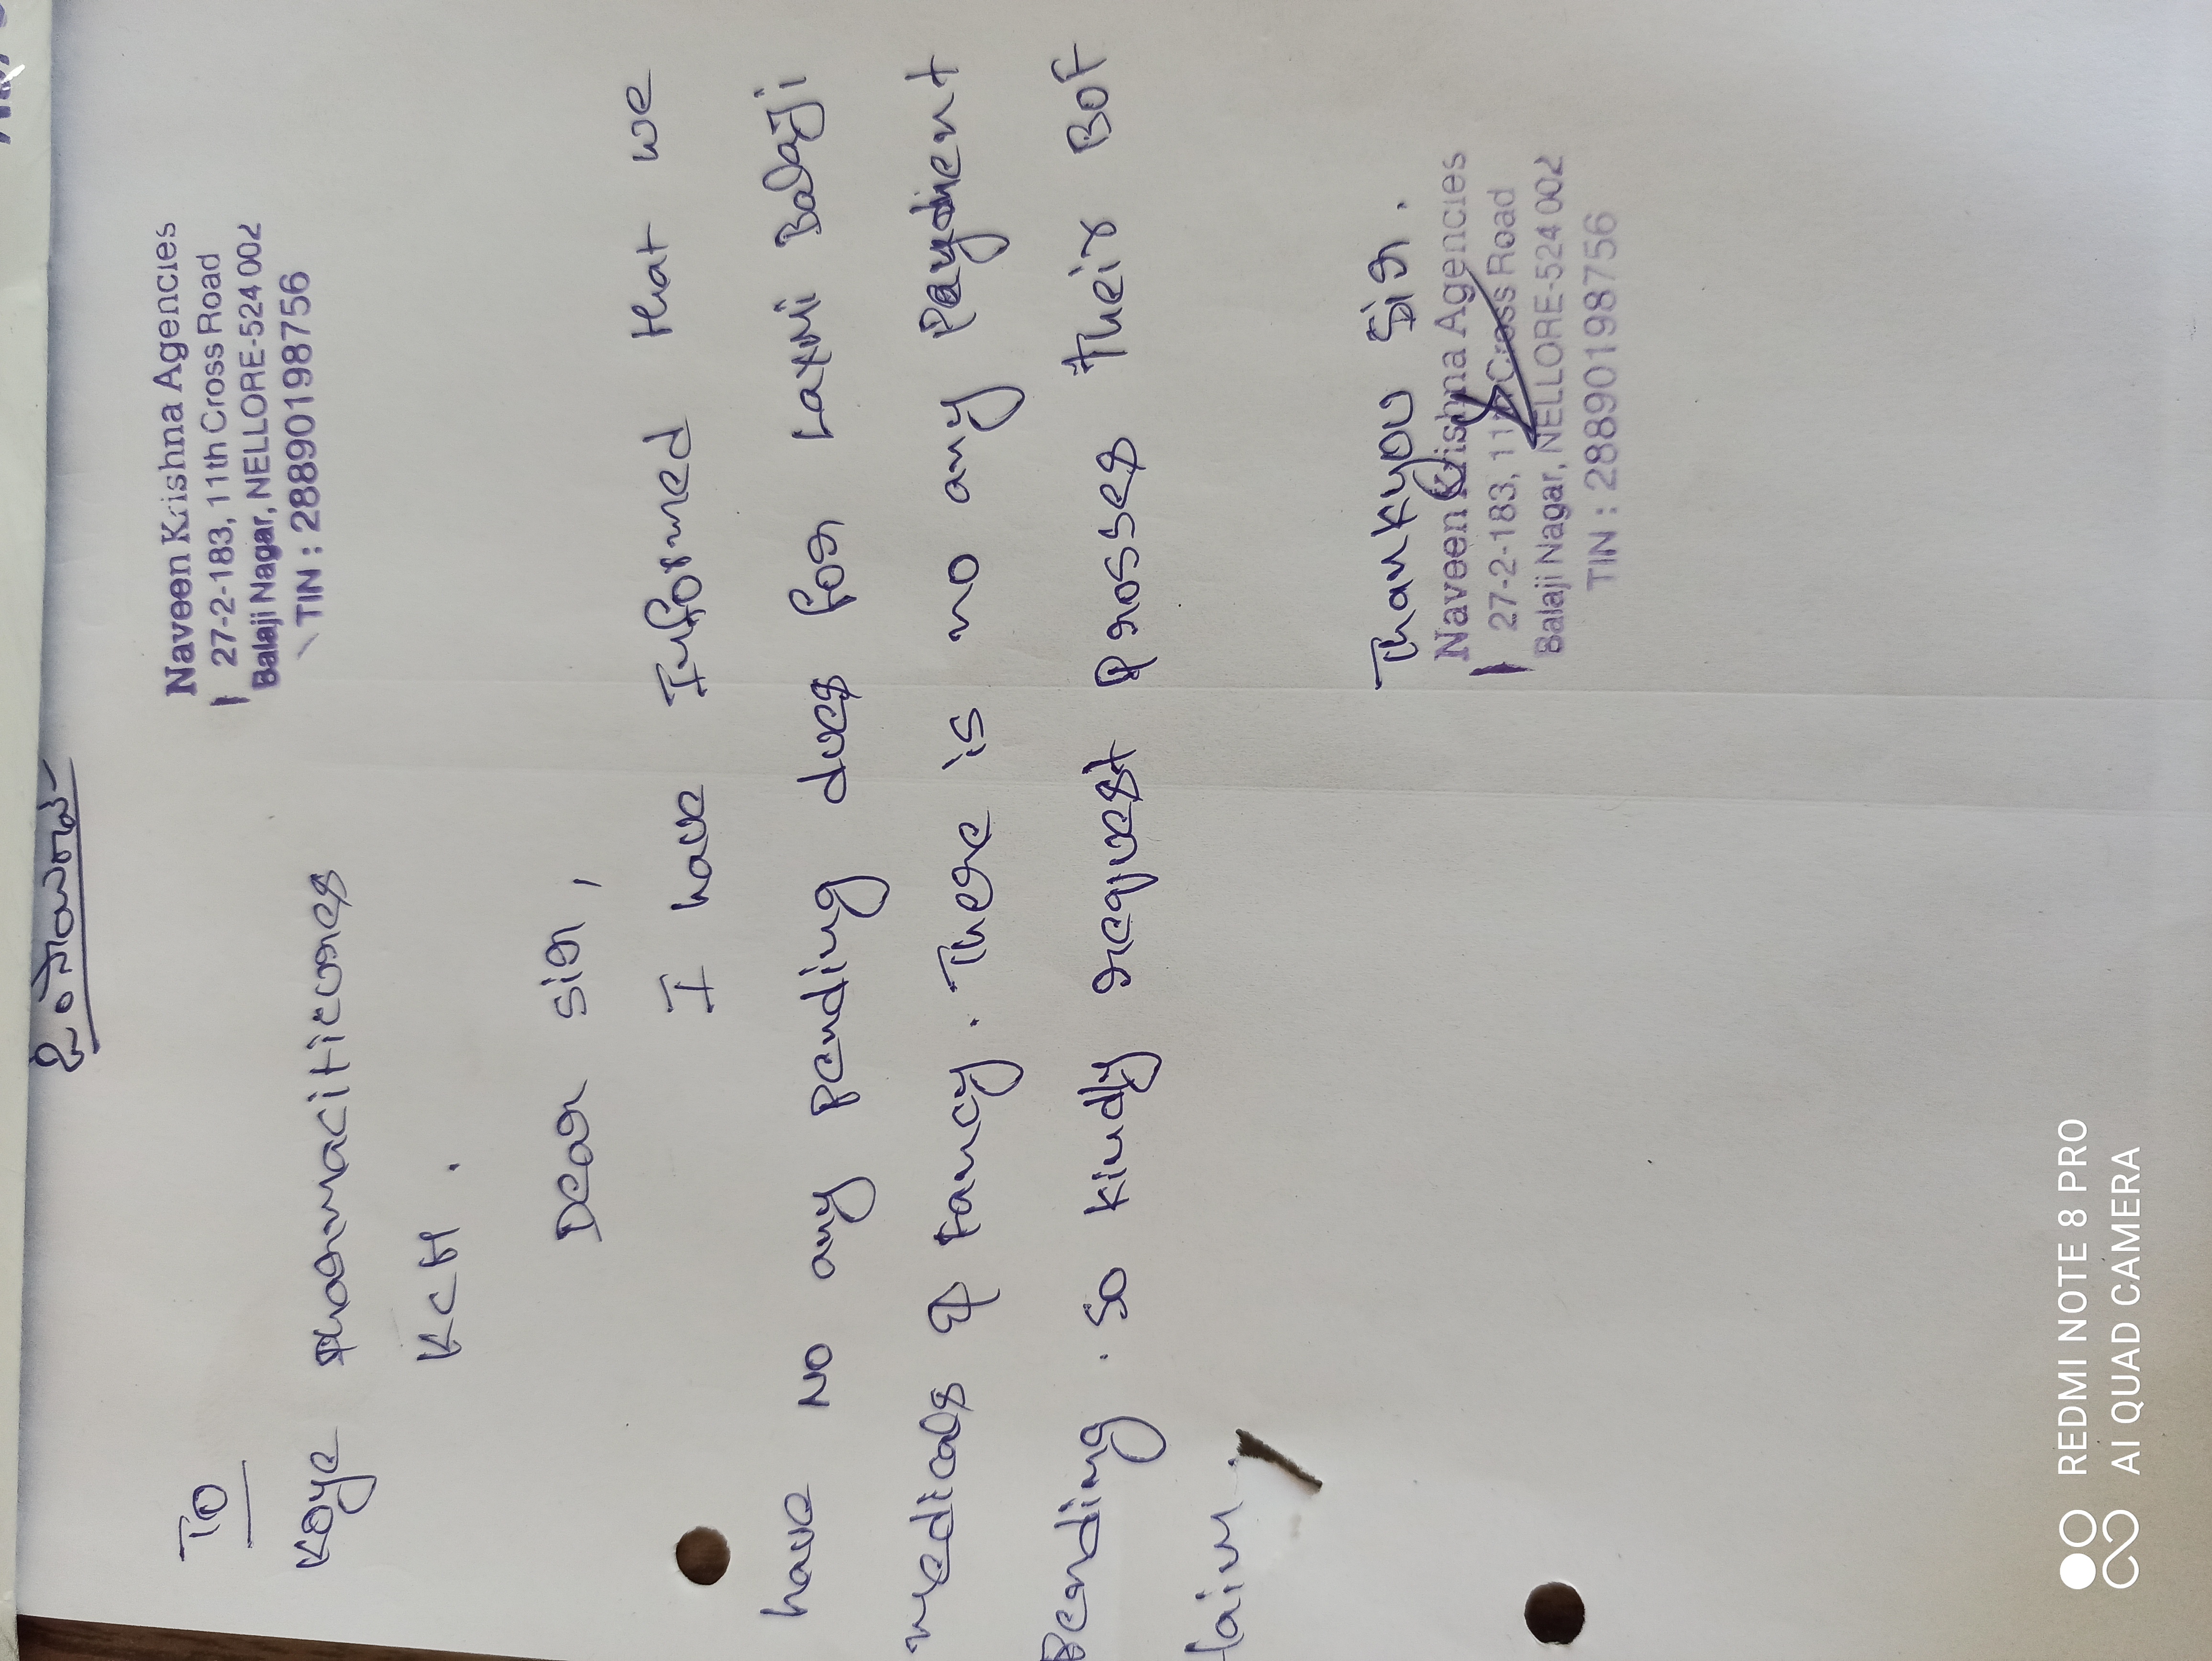 To
Naveen Krishna Agencies
27-2-183, 11th Cross Road
Balaji Nagar, NELLORE-524 002
TIN : 28890198756
Koye Pharmaciticures
KCH.
Dear sir,
I have Informed that we
have NO any pending dues for Laxmi Balaji
medicals & fancy. There is no any Payment
Pending. So kindly request Prosses their BOF
Thankyou Sir.
Naveen Krishna Agencies
27-2-183, 11th Cross Road
Balaji Nagar, NELLORE-524 002
TIN : 28890198756
REDMI NOTE 8 PRO
AI QUAD CAMERA